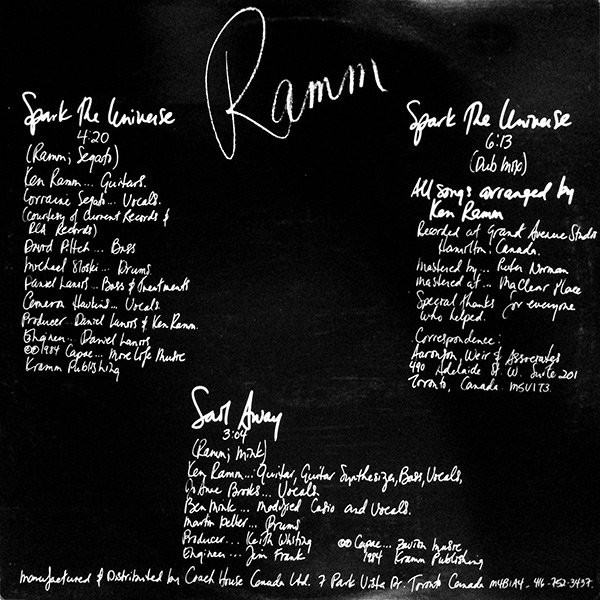 Ramm
Spark The Universe
4:20
(Ramm; Segato)
Ken Ramm... Guitars.
Lorraine Segato... Vocals.
(courtesy of Current Records &
RCA Records)
David Piltch... Bass
Michael Sloski... Drums.
Daniel Lanois... Bass & Treatments
Cameron Hawkins... Vocals.
Producer.. Daniel Lanois & Ken Ramm.
Engineer.. Daniel Lanois
©℗ 1984 Capac... More Life Music
Kramm Publishing
Spark The Universe
6:13
(Dub Mix)
All songs arranged by
Ken Ramm
Recorded at Grant Avenue Studio
Hamilton, Canada.
Mastered by... Peter Norman
mastered at... MaClear Place
Special thanks for everyone
who helped.
Correspondence:
Aaronson, Weir & Associates
490 Adelaide St. W. Suite 201
Toronto, Canada. M5V1T3.
Sail Away
3:04
(Ramm; Mink)
Ken Ramm... Guitar, Guitar Synthesizer, Bass, Vocals.
Brooks... Vocals.
Ben Mink... Modified Casio and Vocals.
Martin Deller... Drums
Producer... Keith Whiting
Engineer... Jim Frank
©℗ Capac... Zavion Music
1984 Kramm Publishing
manufactured & Distributed by Coach House Canada Ltd. 7 Park Vista Dr. Toronto Canada M4B1A4 - 416-752-3437.